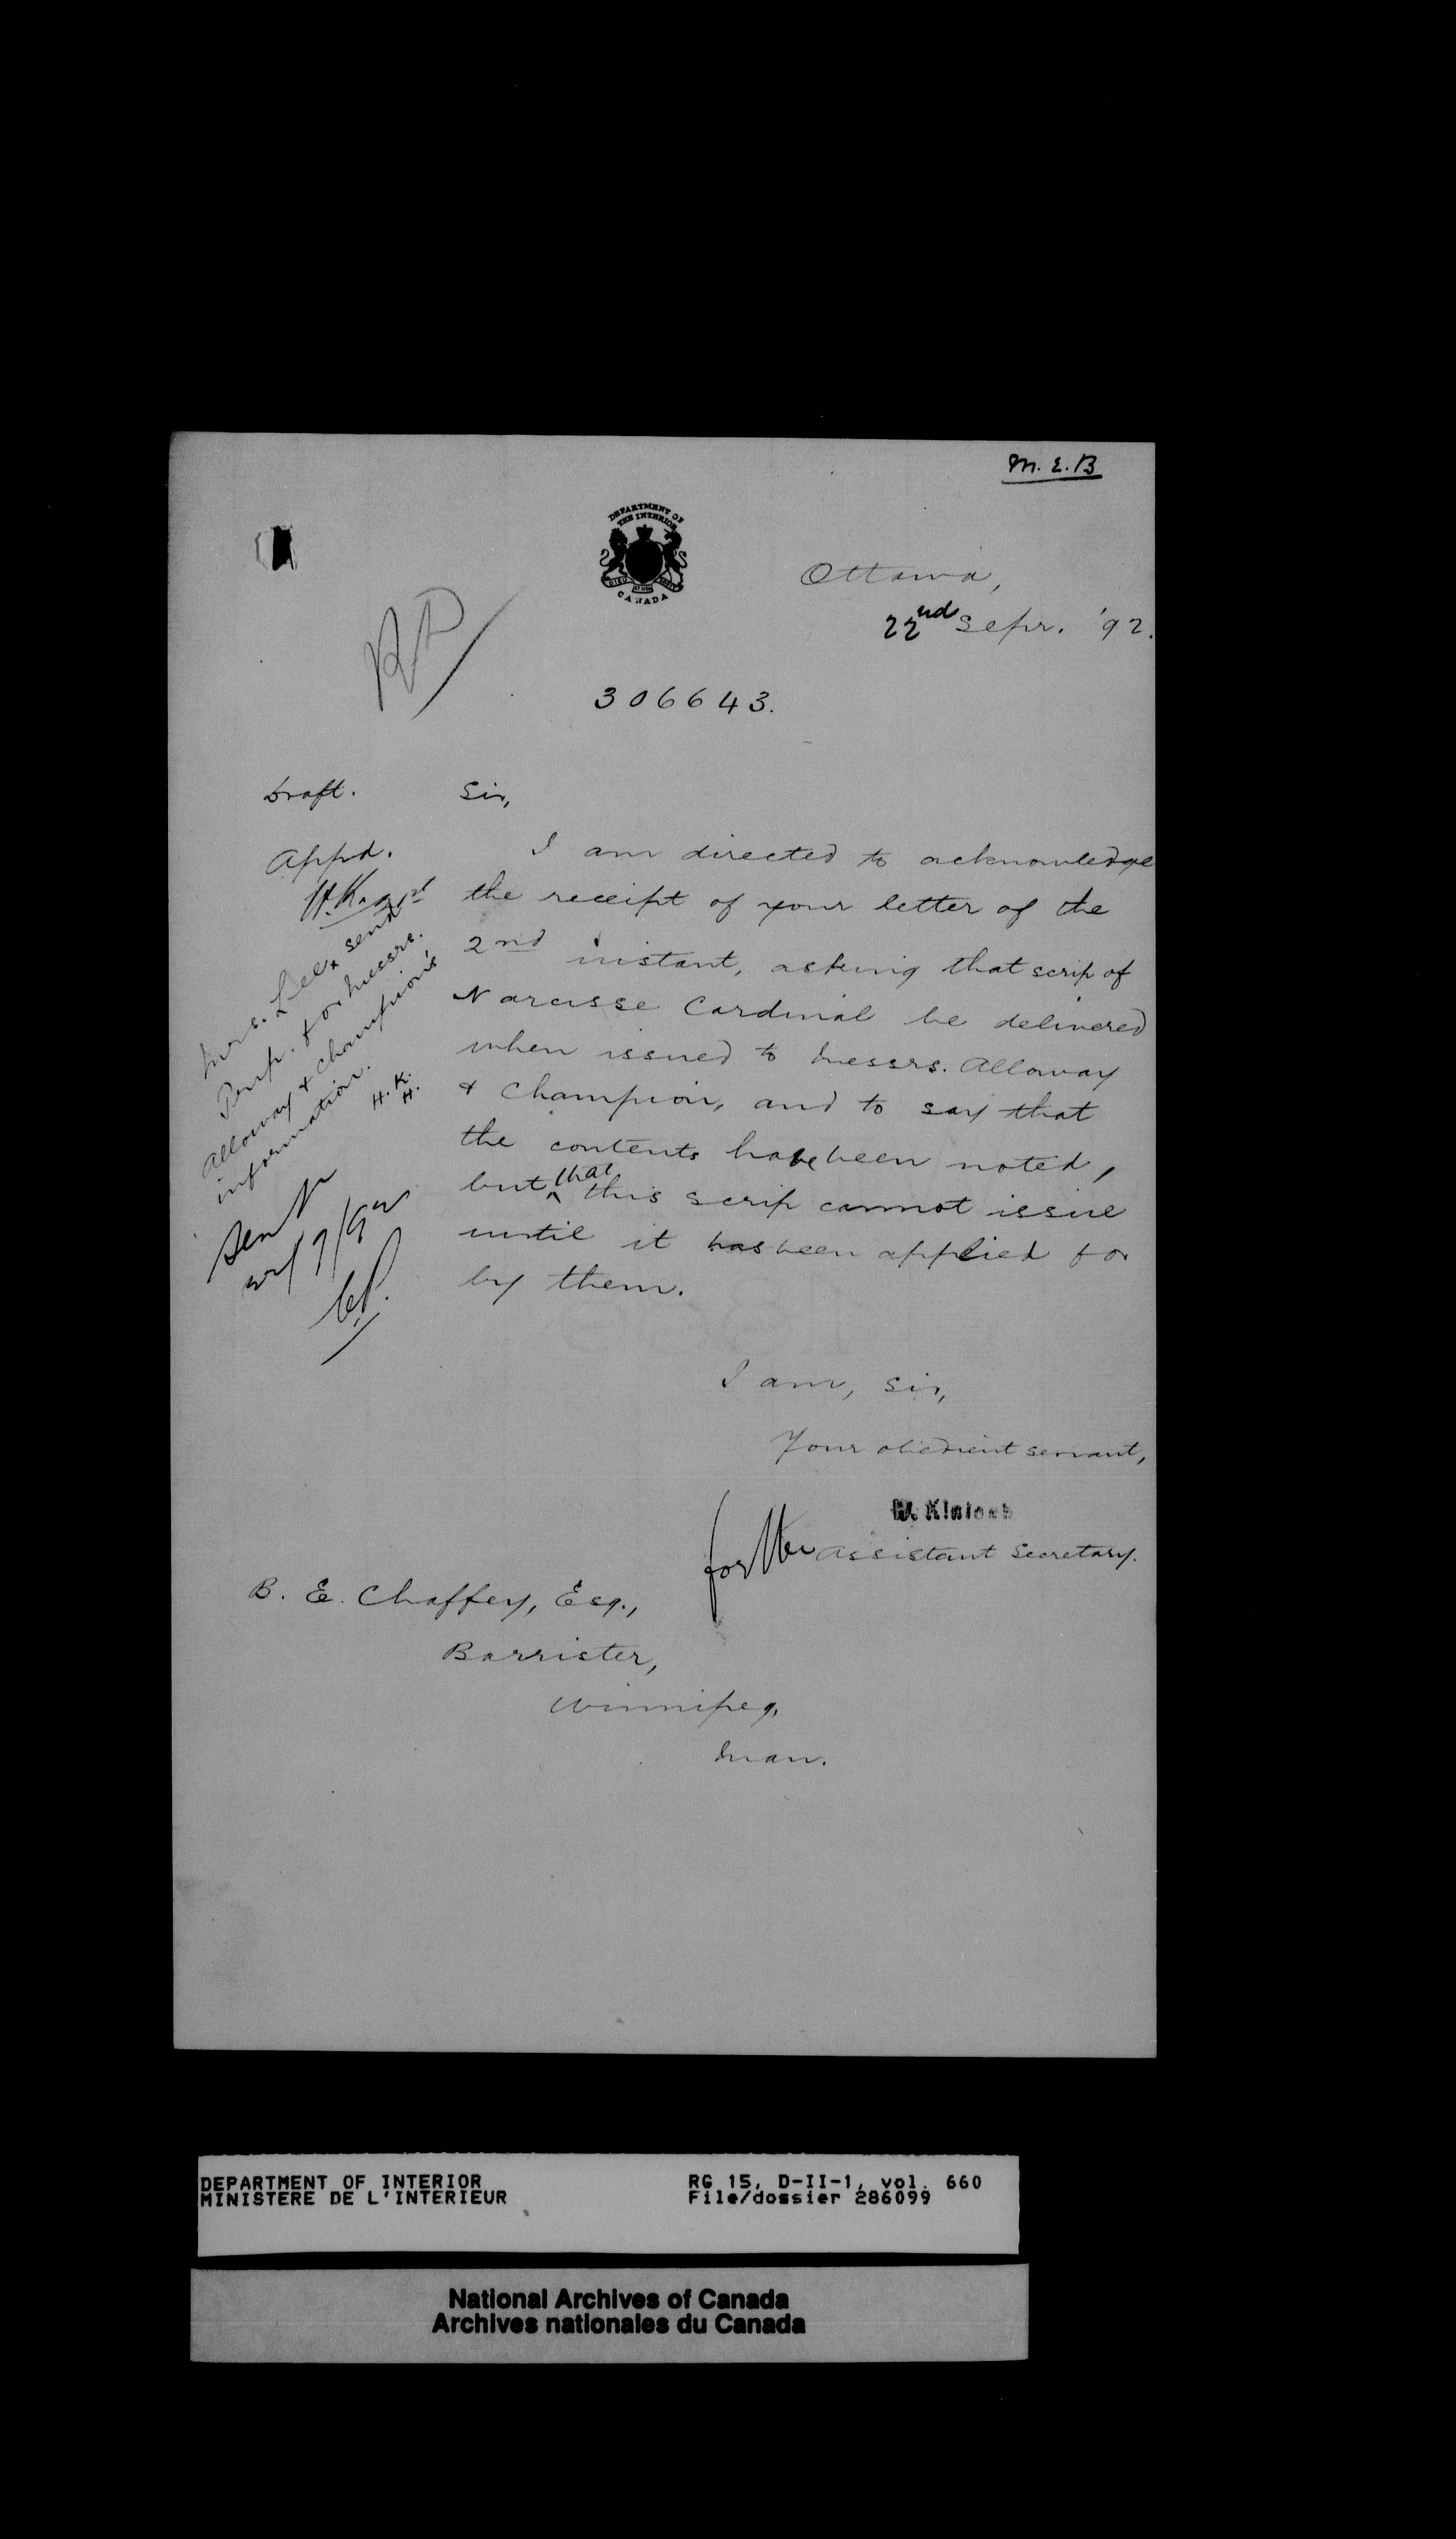 M. E. B
DEPARTMENT OF
THE INTERIOR
CANADA
Ottawa,
22nd Sepr. '92.
306643.
Draft.
Appd.
Sir,
I am directed to acknowledge
the receipt of your letter of the
2nd instant, asking that scrip of
Narcisse Cardinal be delivered
when issued to Messrs. Alloway
& Champion, and to say that
the contents have been noted,
but that this scrip cannot issue
until it has been applied for
by them.
Mrs. Lee send
for Messrs.
Alloway & Champion's
information.
H. K.
H.
Sent
I am, Sir,
Your obedient servant,
W. Kinloch
for the Assistant Secretary.
B. E. Chaffey, Esq.,
Barrister,
Winnipeg,
Man.
DEPARTMENT OF INTERIOR
MINISTERE DE L'INTERIEUR
RG 15, D-II-1, vol. 660
File/dossier 286099
National Archives of Canada
Archives nationales du Canada